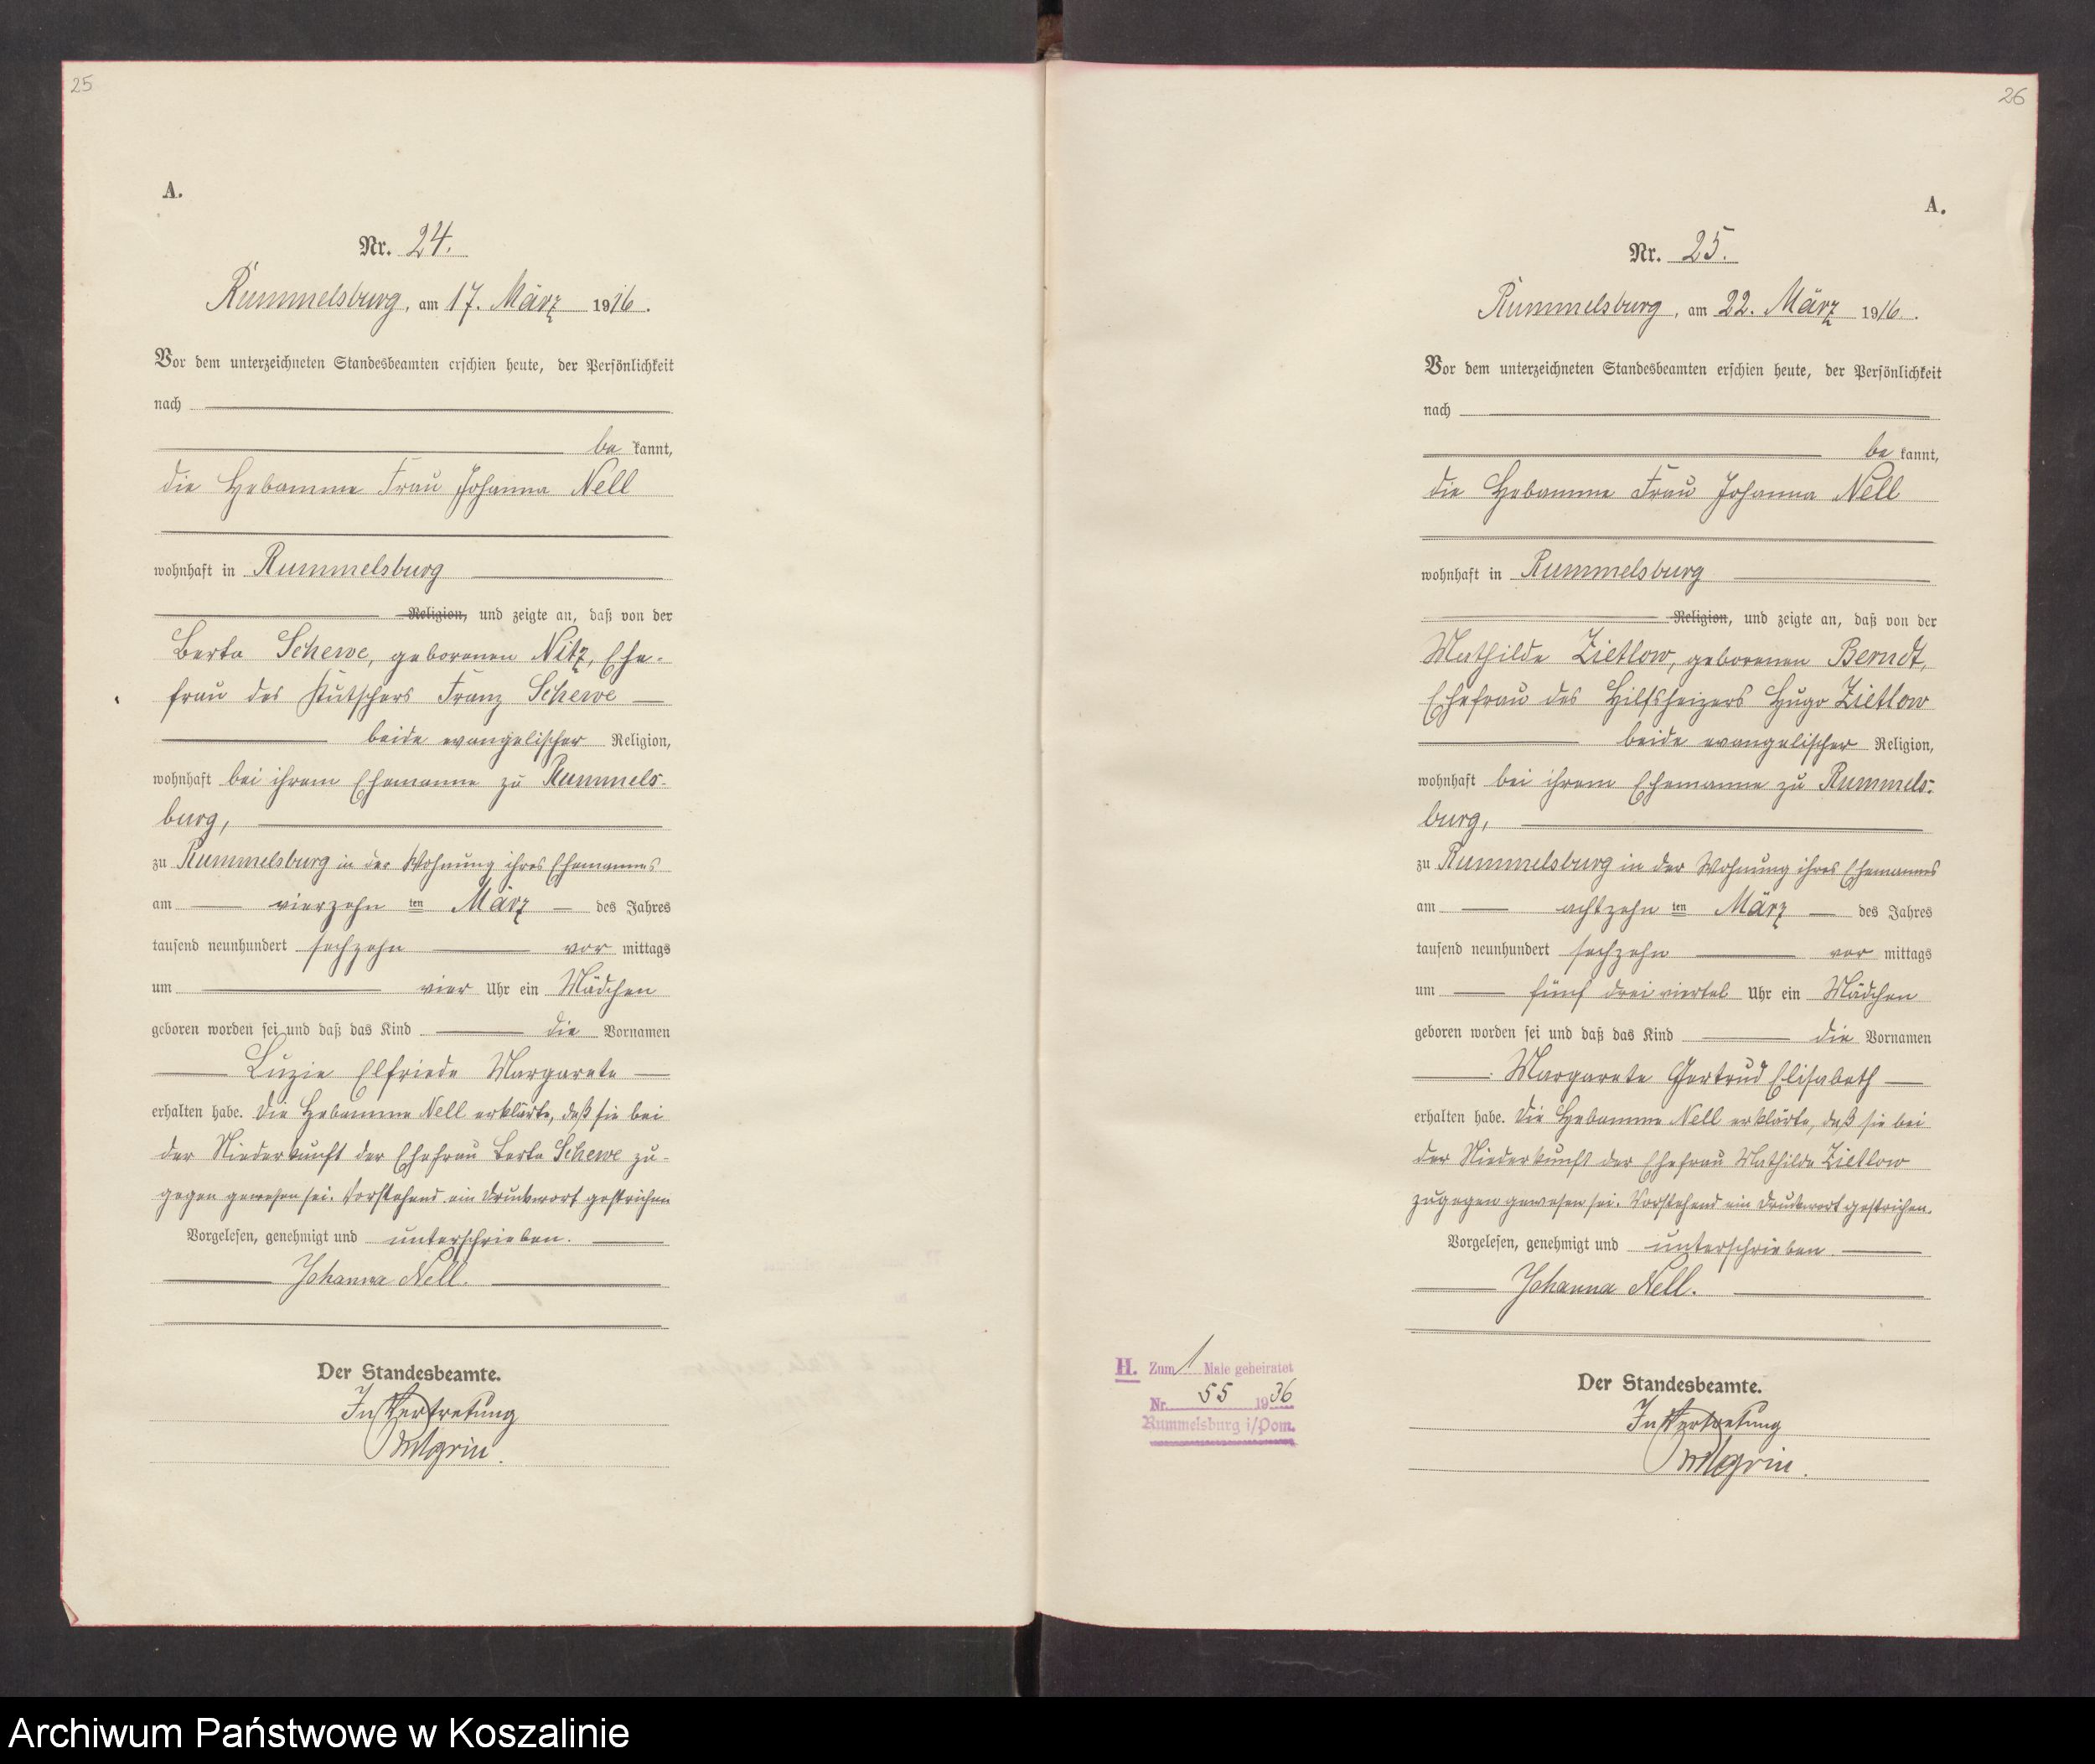 25
A.
Nr. 24.
Rummelsburg, am 17. März 1916.
Vor dem unterzeichneten Standesbeamten erschien heute, der Persönlichkeit
nach
be kannt,
die Hebamme Frau Johanna Nell
wohnhaft in Rummelsburg
Religion, und zeigte an, daß von der
Berta Schewe, geborenen Nitz, Ehe-
frau des Kutschers Franz Schewe
beide evangelischer Religion,
wohnhaft bei ihrem Ehemanne zu Rummels-
burg,
zu Rummelsburg in der Wohnung ihres Ehemannes
am vierzehn ten März des Jahres
tausend neunhundert sechzehn vor mittags
um vier Uhr ein Mädchen
geboren worden sei und daß das Kind die Vornamen
Luzie Elfriede Margarete
erhalten habe. Die Hebamme Nell erklärte, daß sie bei
der Niederkunft der Ehefrau Berta Schewe zu-
gegen gewesen sei. Vorstehend ein Druckwort gestrichen
Vorgelesen, genehmigt und unterschrieben.
Johanna Nell.
Der Standesbeamte.
In Vertretung
26
A.
Nr. 25.
Rummelsburg, am 22. März 1916.
Vor dem unterzeichneten Standesbeamten erschien heute, der Persönlichkeit
nach
be kannt,
die Hebamme Frau Johanna Nell
wohnhaft in Rummelsburg
Religion, und zeigte an, daß von der
Mathilde Zietlow, geborenen Berndt,
Ehefrau des Hilfsheizers Hugo Zietlow
beide evangelischer Religion,
wohnhaft bei ihrem Ehemanne zu Rummels-
burg,
zu Rummelsburg in der Wohnung ihres Ehemannes
am achtzehn ten März des Jahres
tausend neunhundert sechzehn vor mittags
um fünf drei viertel Uhr ein Mädchen
geboren worden sei und daß das Kind die Vornamen
Margarete Gertrud Elisabeth
erhalten habe. Die Hebamme Nell erklärte, daß sie bei
der Niederkunft der Ehefrau Mathilde Zietlow
zugegen gewesen sei. Vorstehend ein Druckwort gestrichen.
Vorgelesen, genehmigt und unterschrieben
Johanna Nell.
Der Standesbeamte.
In Vertretung
H. Zum 1 Male geheiratet
Nr. 55 1936
Rummelsburg i/Pom.
Archiwum Państwowe w Koszalinie